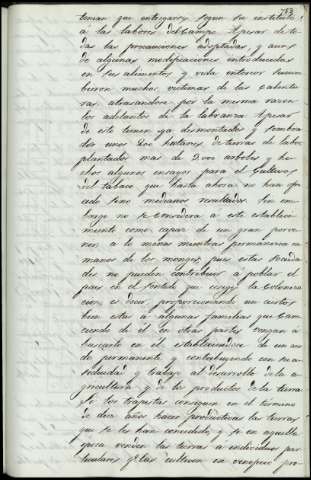 753
tenian que entregarse segun su instituto
á las labores del campo. A pesar de to-
das las precauciones adoptadas, y aun
de algunas modificaciones introducidas
en sus alimentos y vida interior sucum-
bieron muchos, victimas de las calentu-
ras, atrasandose por la misma razon
los adelantos de la labranza. A pesar
de esto tienen ya desmontadas y sembra-
das unas 200 hectares de tierras de labor
plantados mas de 2.000 arboles, he-
chos algunos ensayos para el cultivo
del tabaco que hasta ahora no han ofre-
cido sino medianos resultados. Sin em-
bargo no se considera á este estableci-
miento como capaz de un gran porve-
nir, á lo menos mientras permanezca en
manos de los monges, pues estas socieda-
des no pueden contribuir á poblar el
pais en el sentido que exige la coloniza-
cion, es decir proporcionando un cierto
bien estar á algunas familias que care-
ciendo de él en otras partes vengan á
buscarlo en él estableciendose de un mo-
do permanente y contribuyendo con su a-
siduidad y trabajo al desarrollo de la a-
gricultura y de los productos de la tierra.
Si los trapistas consiguen en el termino
de diez años hacer productivas las tierras
que se les han concedido, y si en aquella
epoca venden las tierras a individuos par-
ticulares que las cultiven en